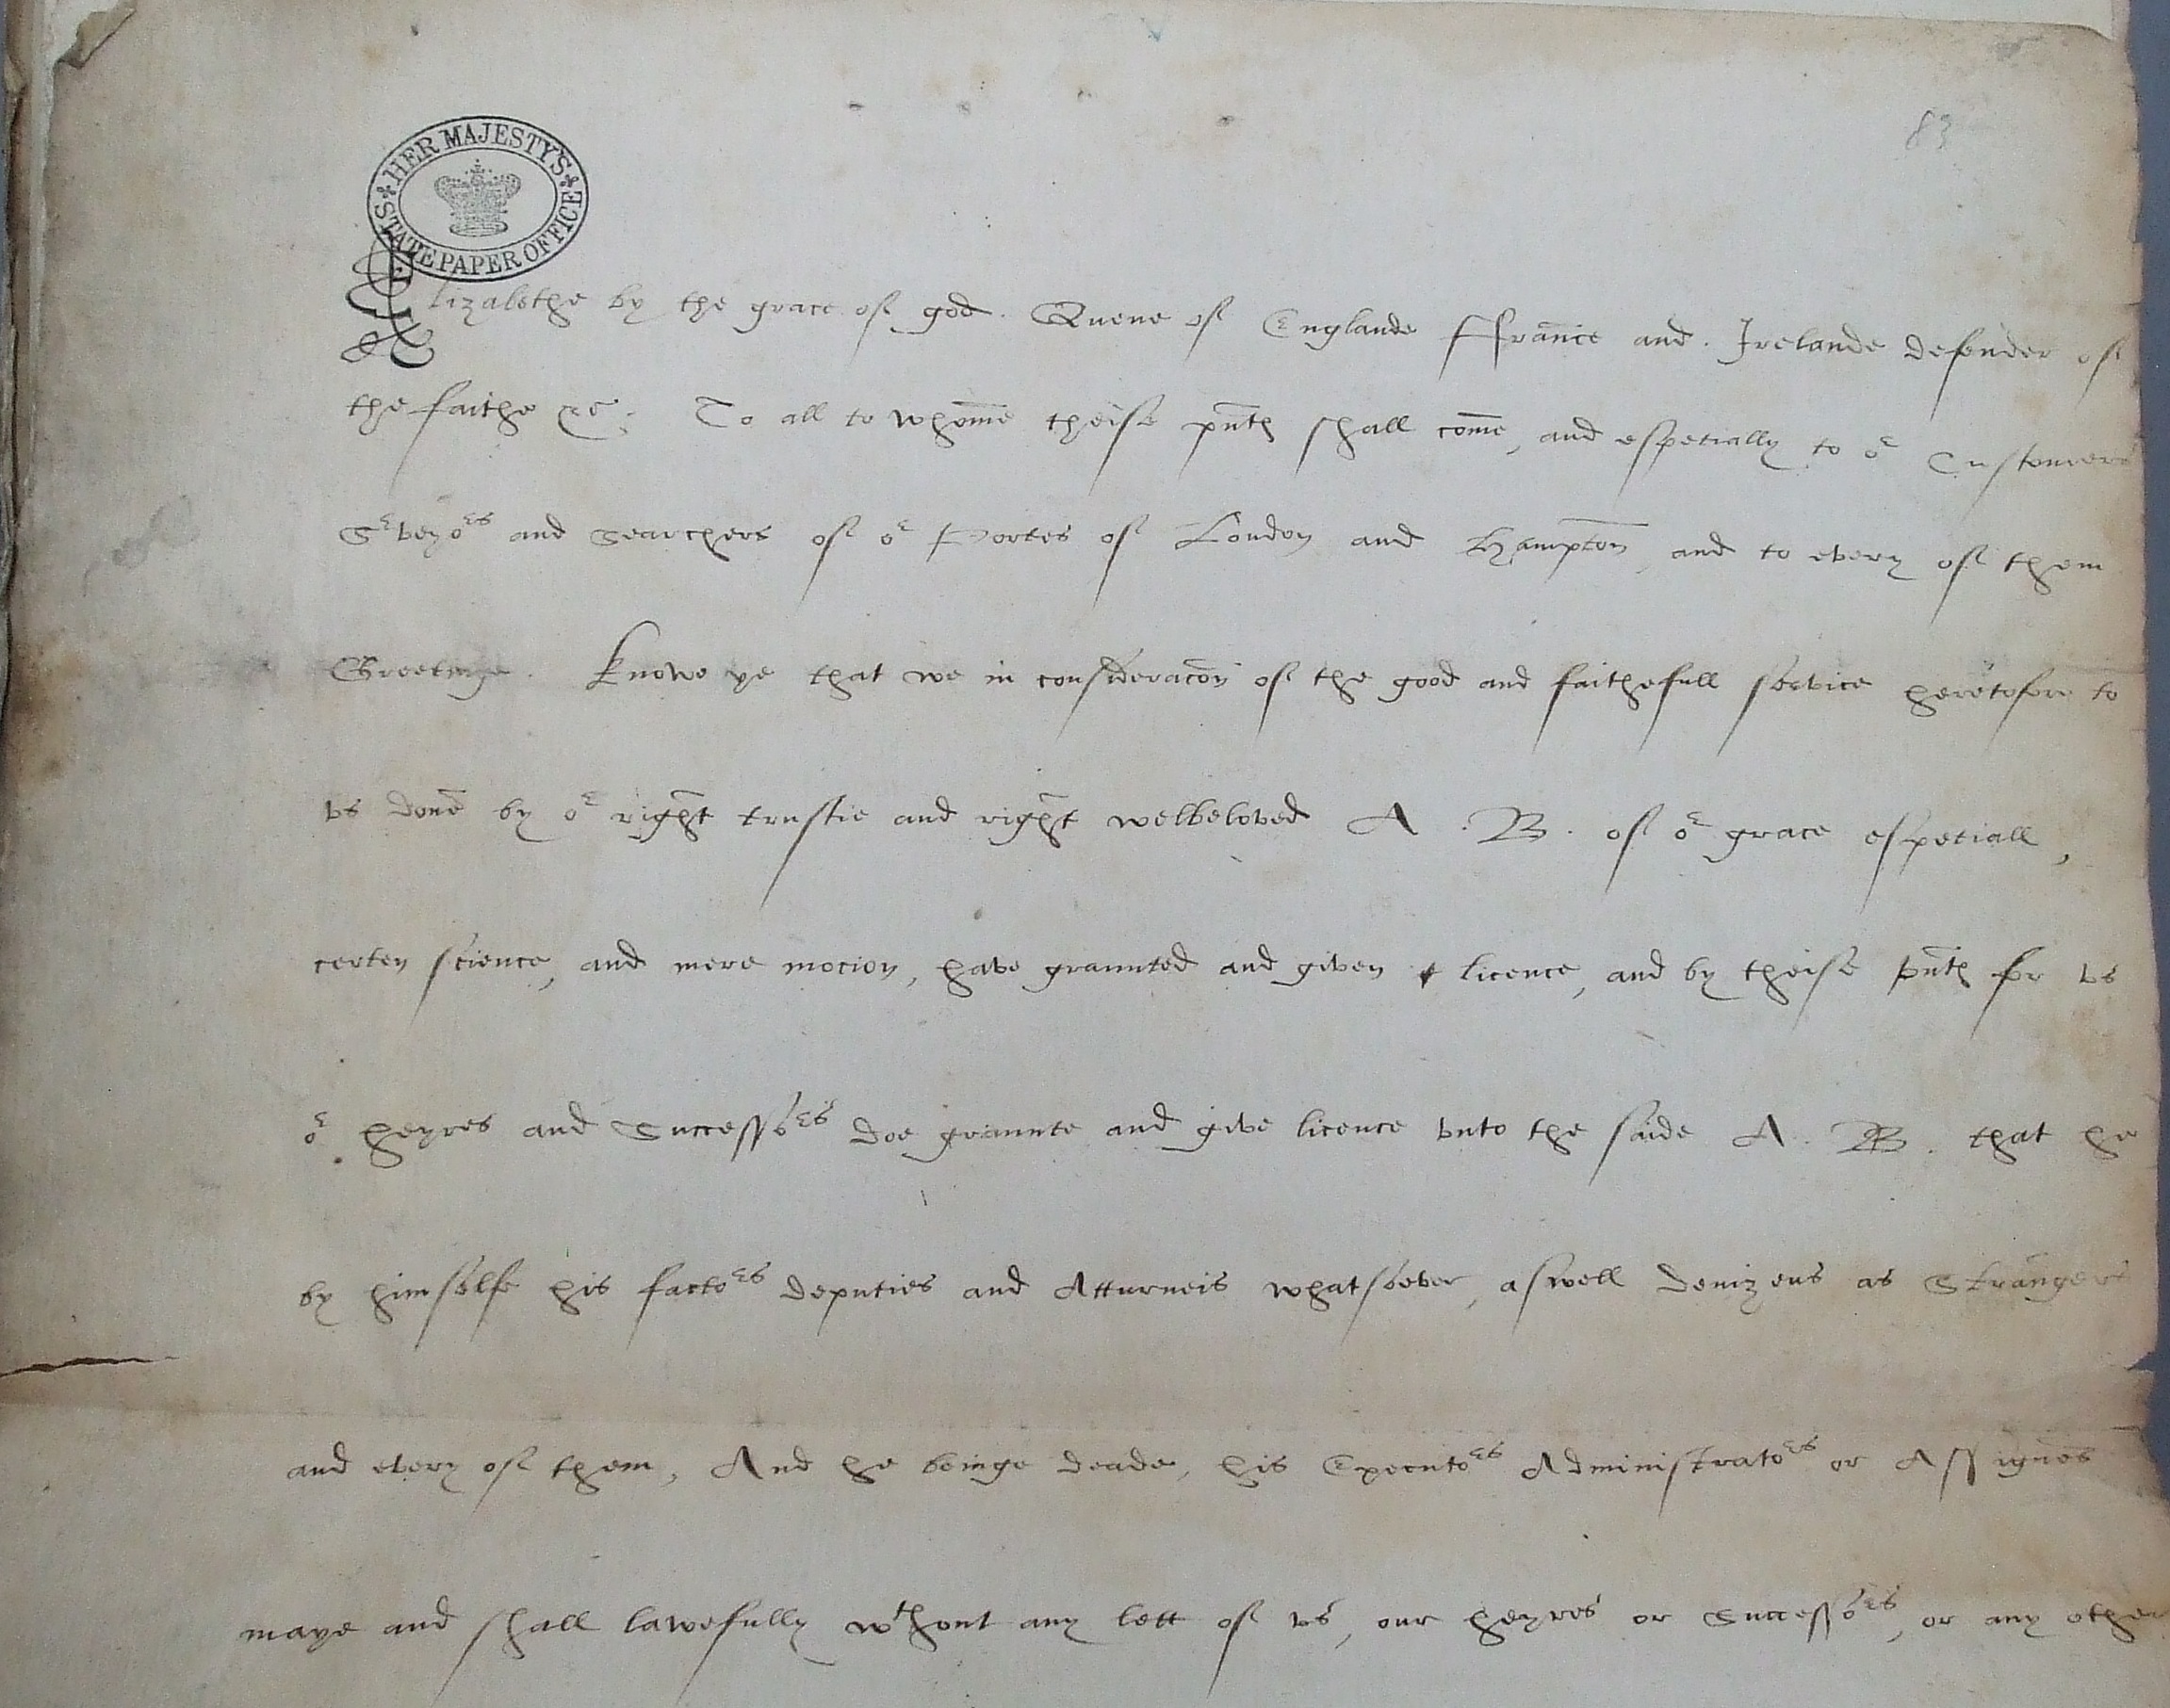 HER MAJESTY'S STATE PAPER OFFICE
83
Elizabethe by the grace of god. Quene of Englande Ffraunce and Irelande defender of
the faithe &c. To all to whome theise pñtꝭ shall come, and espetially to oʳ Customers
Sʳveyoʳˢ and Searchers of oʳ Portes of London and Hampton, and to every of them
Greetinge. Knowe ye that we in consideracōn of the good and faithefull service heretofore to
vs done by oʳ right trustie and right welbeloved A. B. of oʳ grace espetiall,
certen science, and mere mocion, have graunted and given licence, and by theise pñtꝭ for vs
oʳ heyres and Successoʳˢ doe graunte and give licence vnto the saide A. B. that he
by himselfe his factoʳˢ deputies and Atturneis whatsoever, aswell denizens as Strangers
and every of them, And he beinge deade, his Executoʳˢ Administratoʳˢ or Assignes
maye and shall lawefully wᵗhout any lett of vs, our heyres or Successoʳˢ, or any other